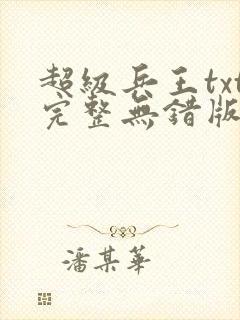 超級兵王txt
完整無錯版
潘某華